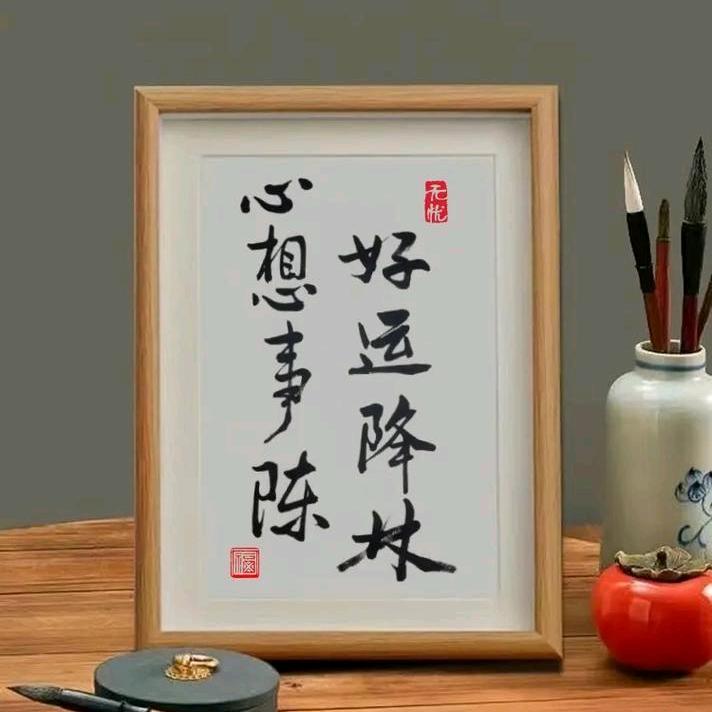 无忧
好运降林
心想事陈
福